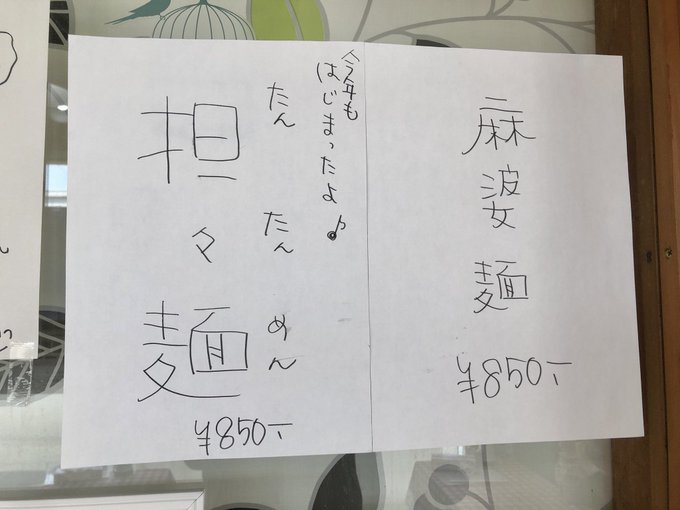 麻婆麺
¥850-
今年も
はじまったよ♪
たんたんめん
担々麺
¥850-